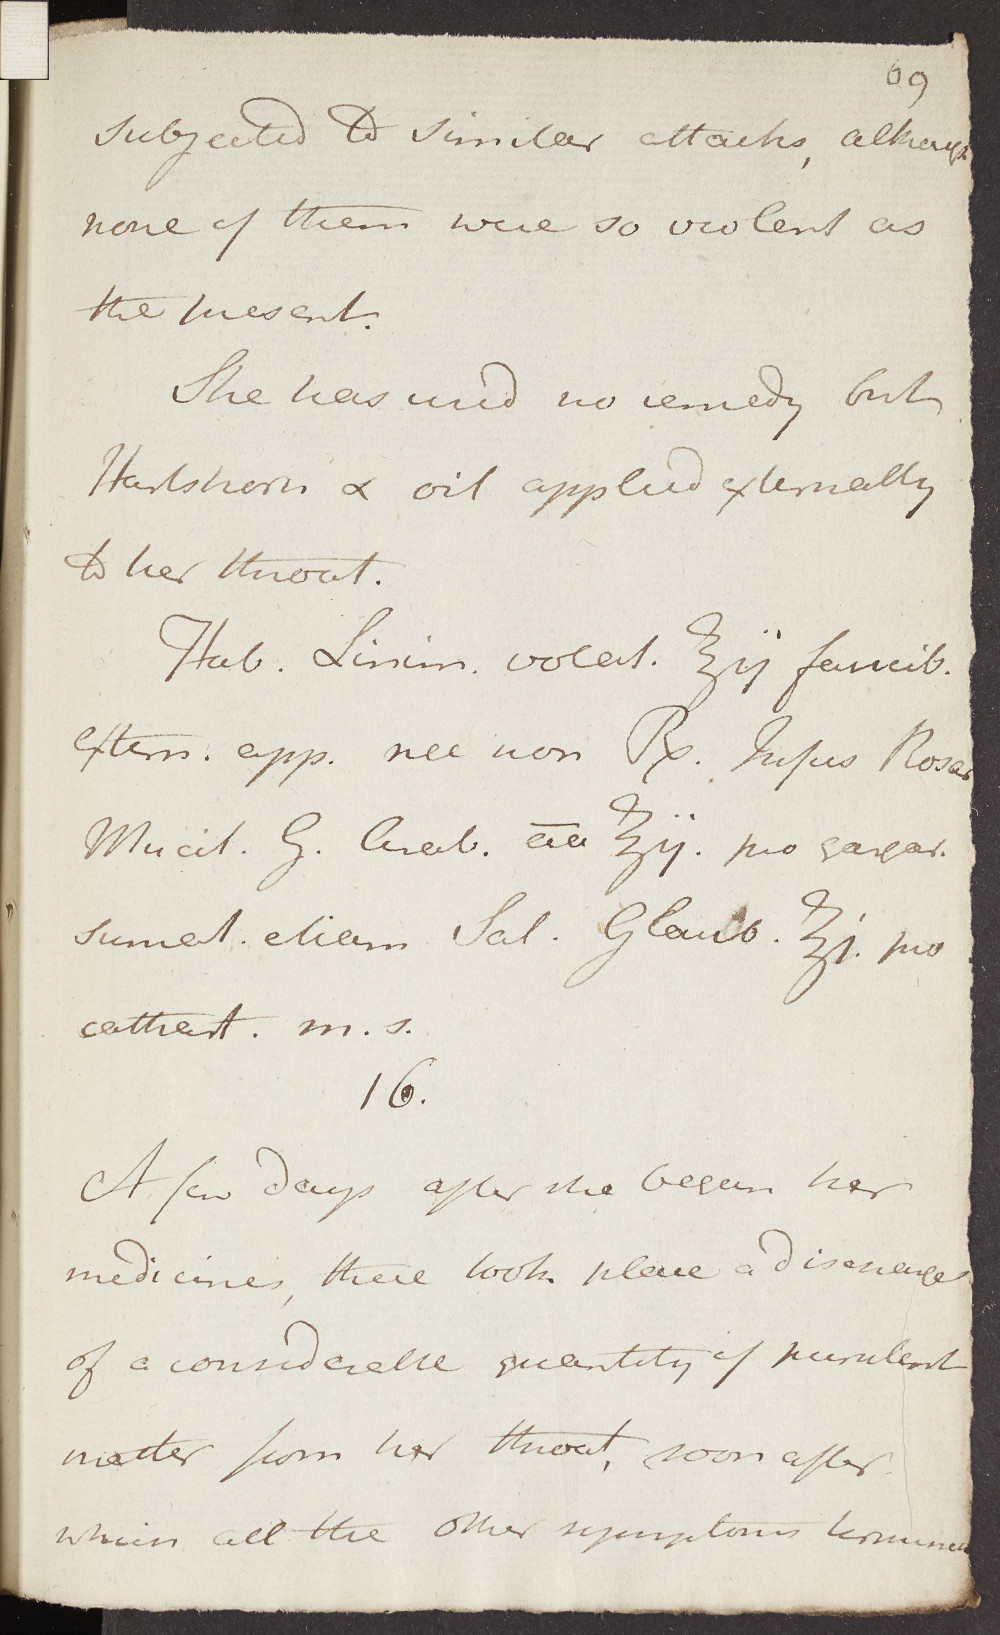 69
subjected to similar attacks, although
none of them were so violent as
the present.
She has used no remedy but
Hartshorn & oil applied externally
to her throat.
Hab. Linim. volat. ℥ij faucib.
extern. app. nec non Rx. Infus Rosar
Mucil. G. Arab. āā ℥ij. pro gargar.
sumat. etiam Sal. Glaub. ℥j. pro
cathart. m. s.
16.
A few days after she began her
medicines, there took place a discharge
of a considerable quantity of purulent
matter from her throat, soon after
which all the other symptoms